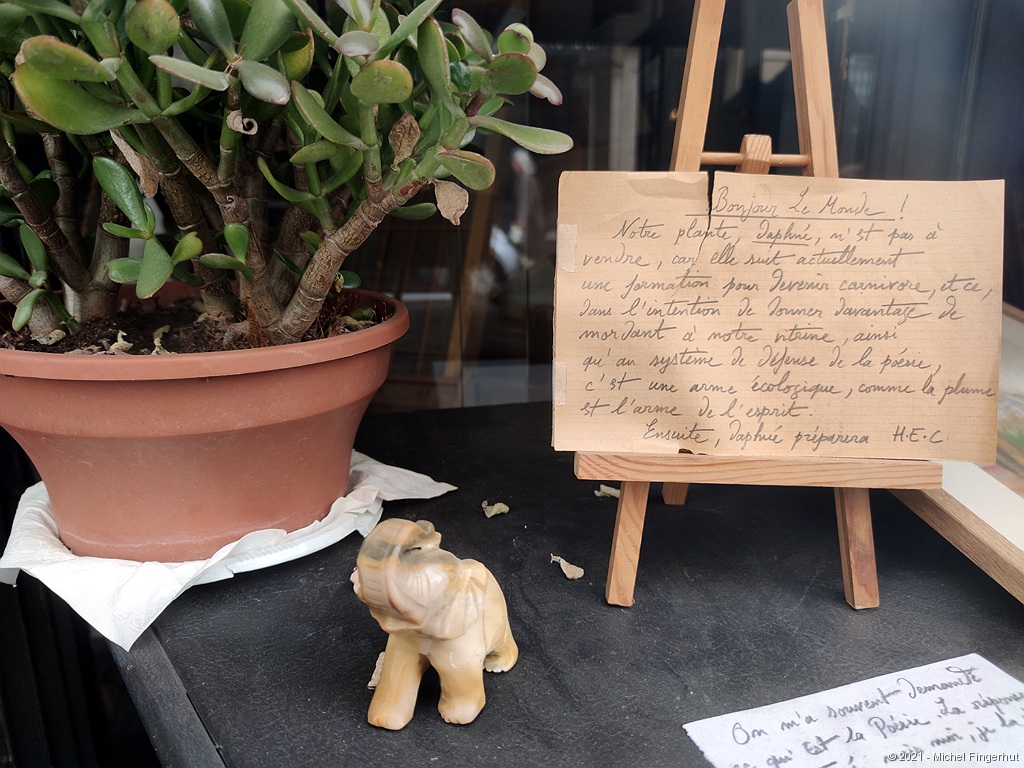 Bonjour Le Monde !
Notre plante, Daphné, n'est pas à
vendre, car elle suit actuellement
une formation pour devenir carnivore, et ce,
dans l'intention de donner davantage de
mordant à notre vitrine, ainsi
qu'au système de défense de la poésie,
c'est une arme écologique, comme la plume
est l'arme de l'esprit.
Ensuite, Daphné préparera H.E.C.
On m'a souvent demandé
qui est la Poésie. La réponse
moi, je la
© 2021 - Michel Fingerhut